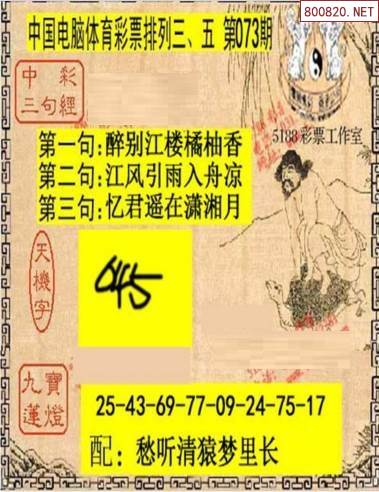 800820.NET
中国电脑体育彩票排列三、五 第073期
中彩
三句經
5188彩票工作室
第一句:醉别江楼橘柚香
第二句:江风引雨入舟凉
第三句:忆君遥在潇湘月
天機字
645
九寶
蓮燈
25-43-69-77-09-24-75-17
配:愁听清猿梦里长